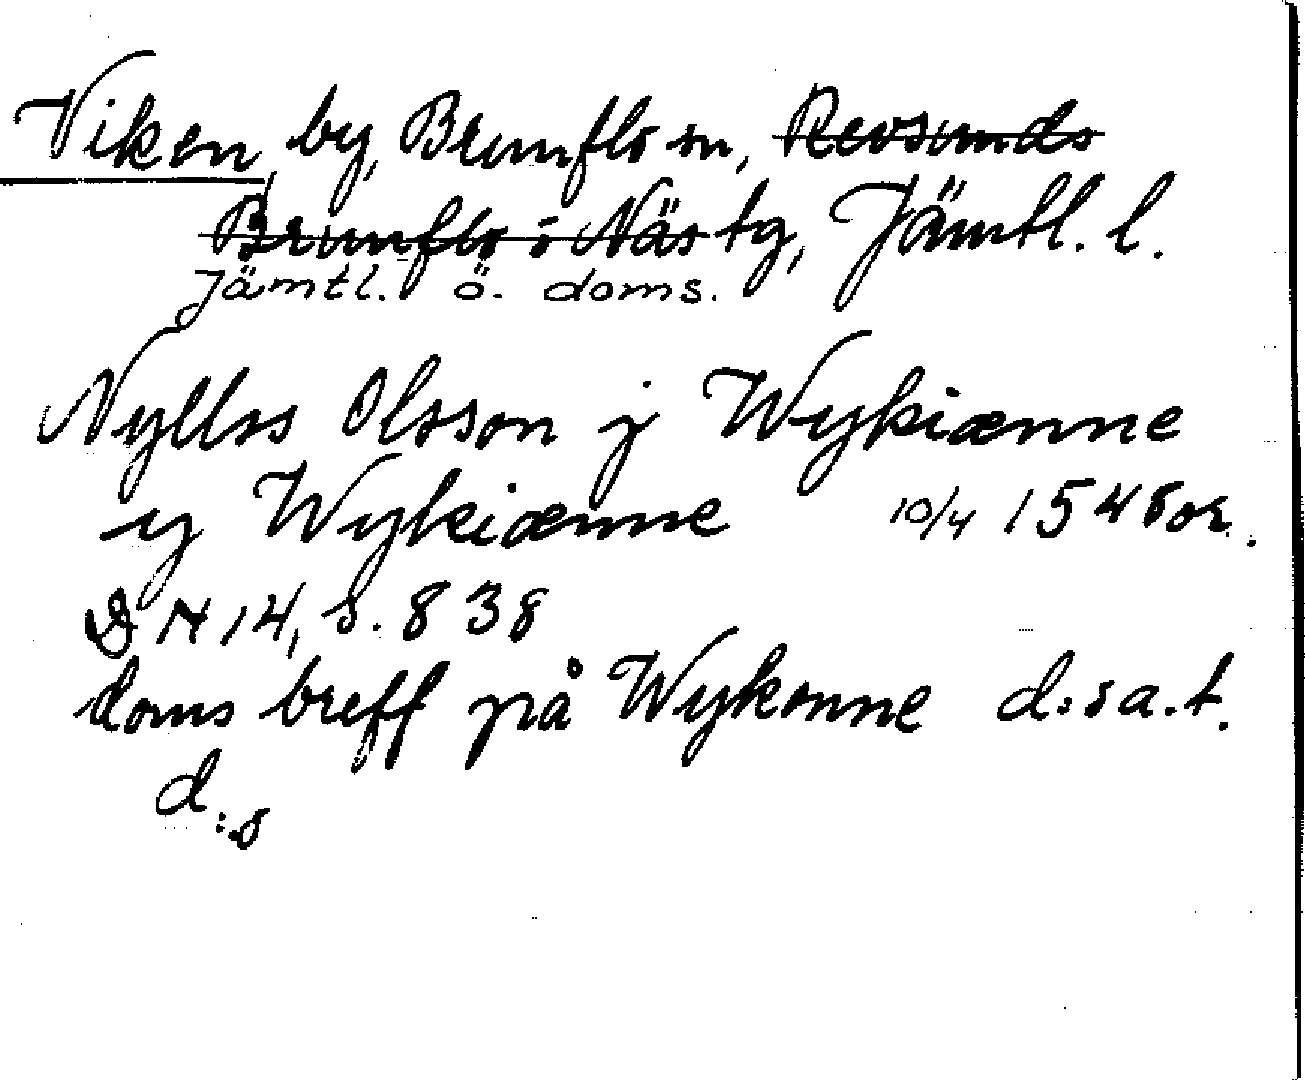 Viken, by, Brunflo sn, Revsunds
Brunflo o Näs tg, Jämtl. l.
Jämtl. ö. doms.
Nyllss Olsson y Wykiænne
y Wykiænne 10/4 1548 or.
DN 14, s. 838
doms breff på Wykenne d:sa.t.
d:s